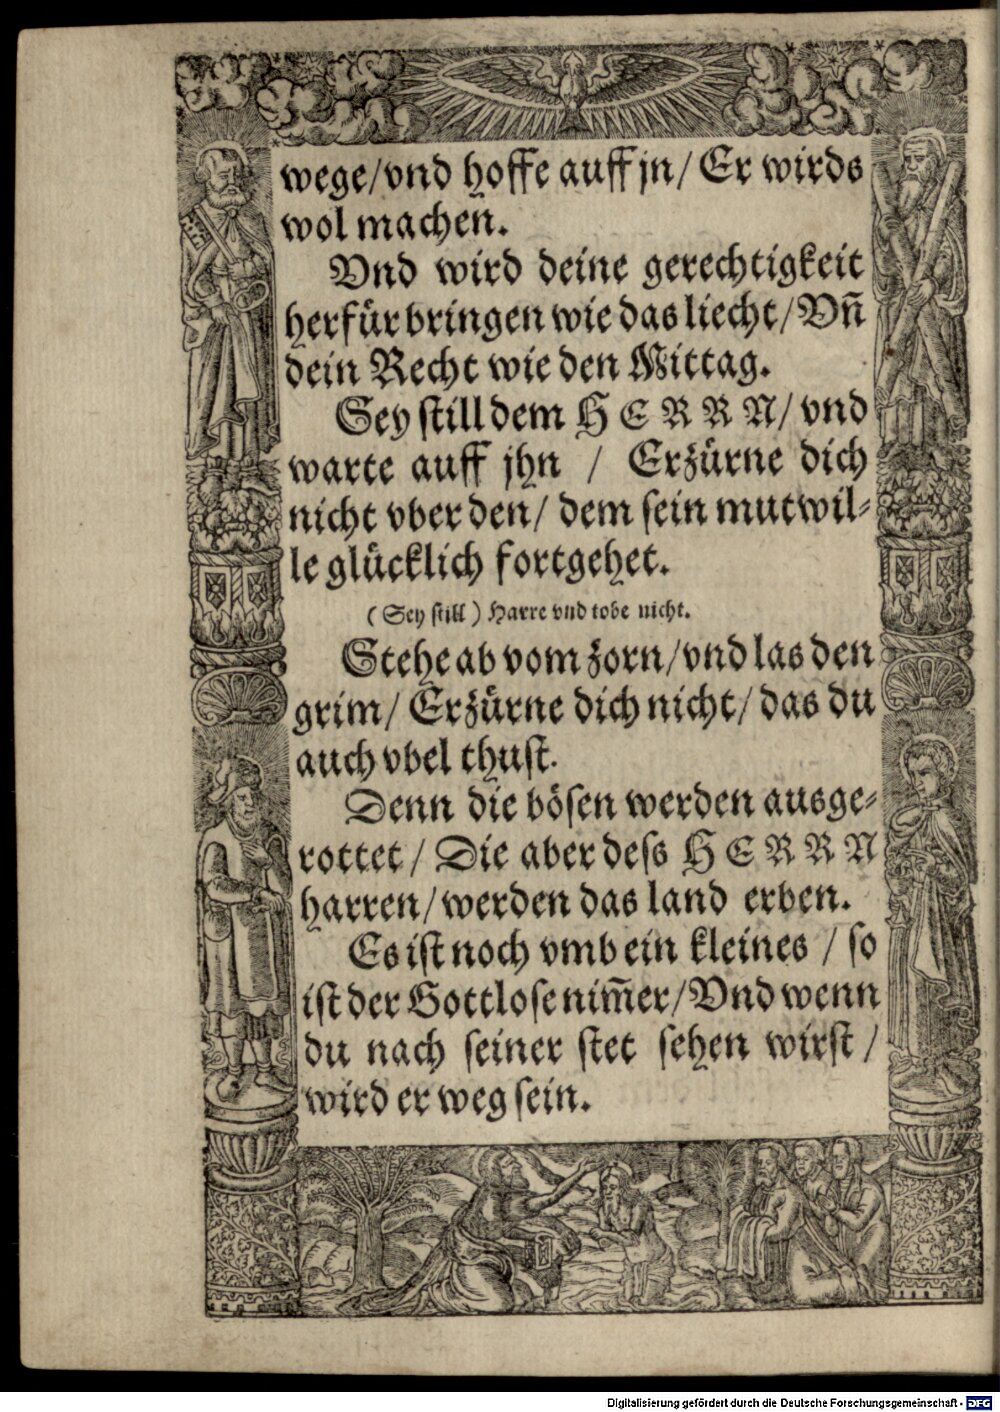 wege/vnd hoffe auff jn/ Er wirds
wol machen.
Vnd wird deine gerechtigkeit
herfür bringen wie das liecht/ Vn̄
dein Recht wie den Mittag.
Sey still dem HERRN/ vnd
warte auff jhn / Erzürne dich
nicht vber den/ dem sein mutwil-
le glücklich fortgehet.
(Sey still) Harre vnd tobe nicht.
Stehe ab vom zorn/vnd las den
grim/ Erzürne dich nicht/ das du
auch vbel thust.
Denn die bösen werden ausge-
rottet/ Die aber deſs HERRN
harren/werden das land erben.
Es ist noch vmb ein kleines / so
ist der Gottlose nim̄er/Vnd wenn
du nach seiner stet sehen wirst /
wird er weg sein.
Digitalisierung gefördert durch die Deutsche Forschungsgemeinschaft - DFG